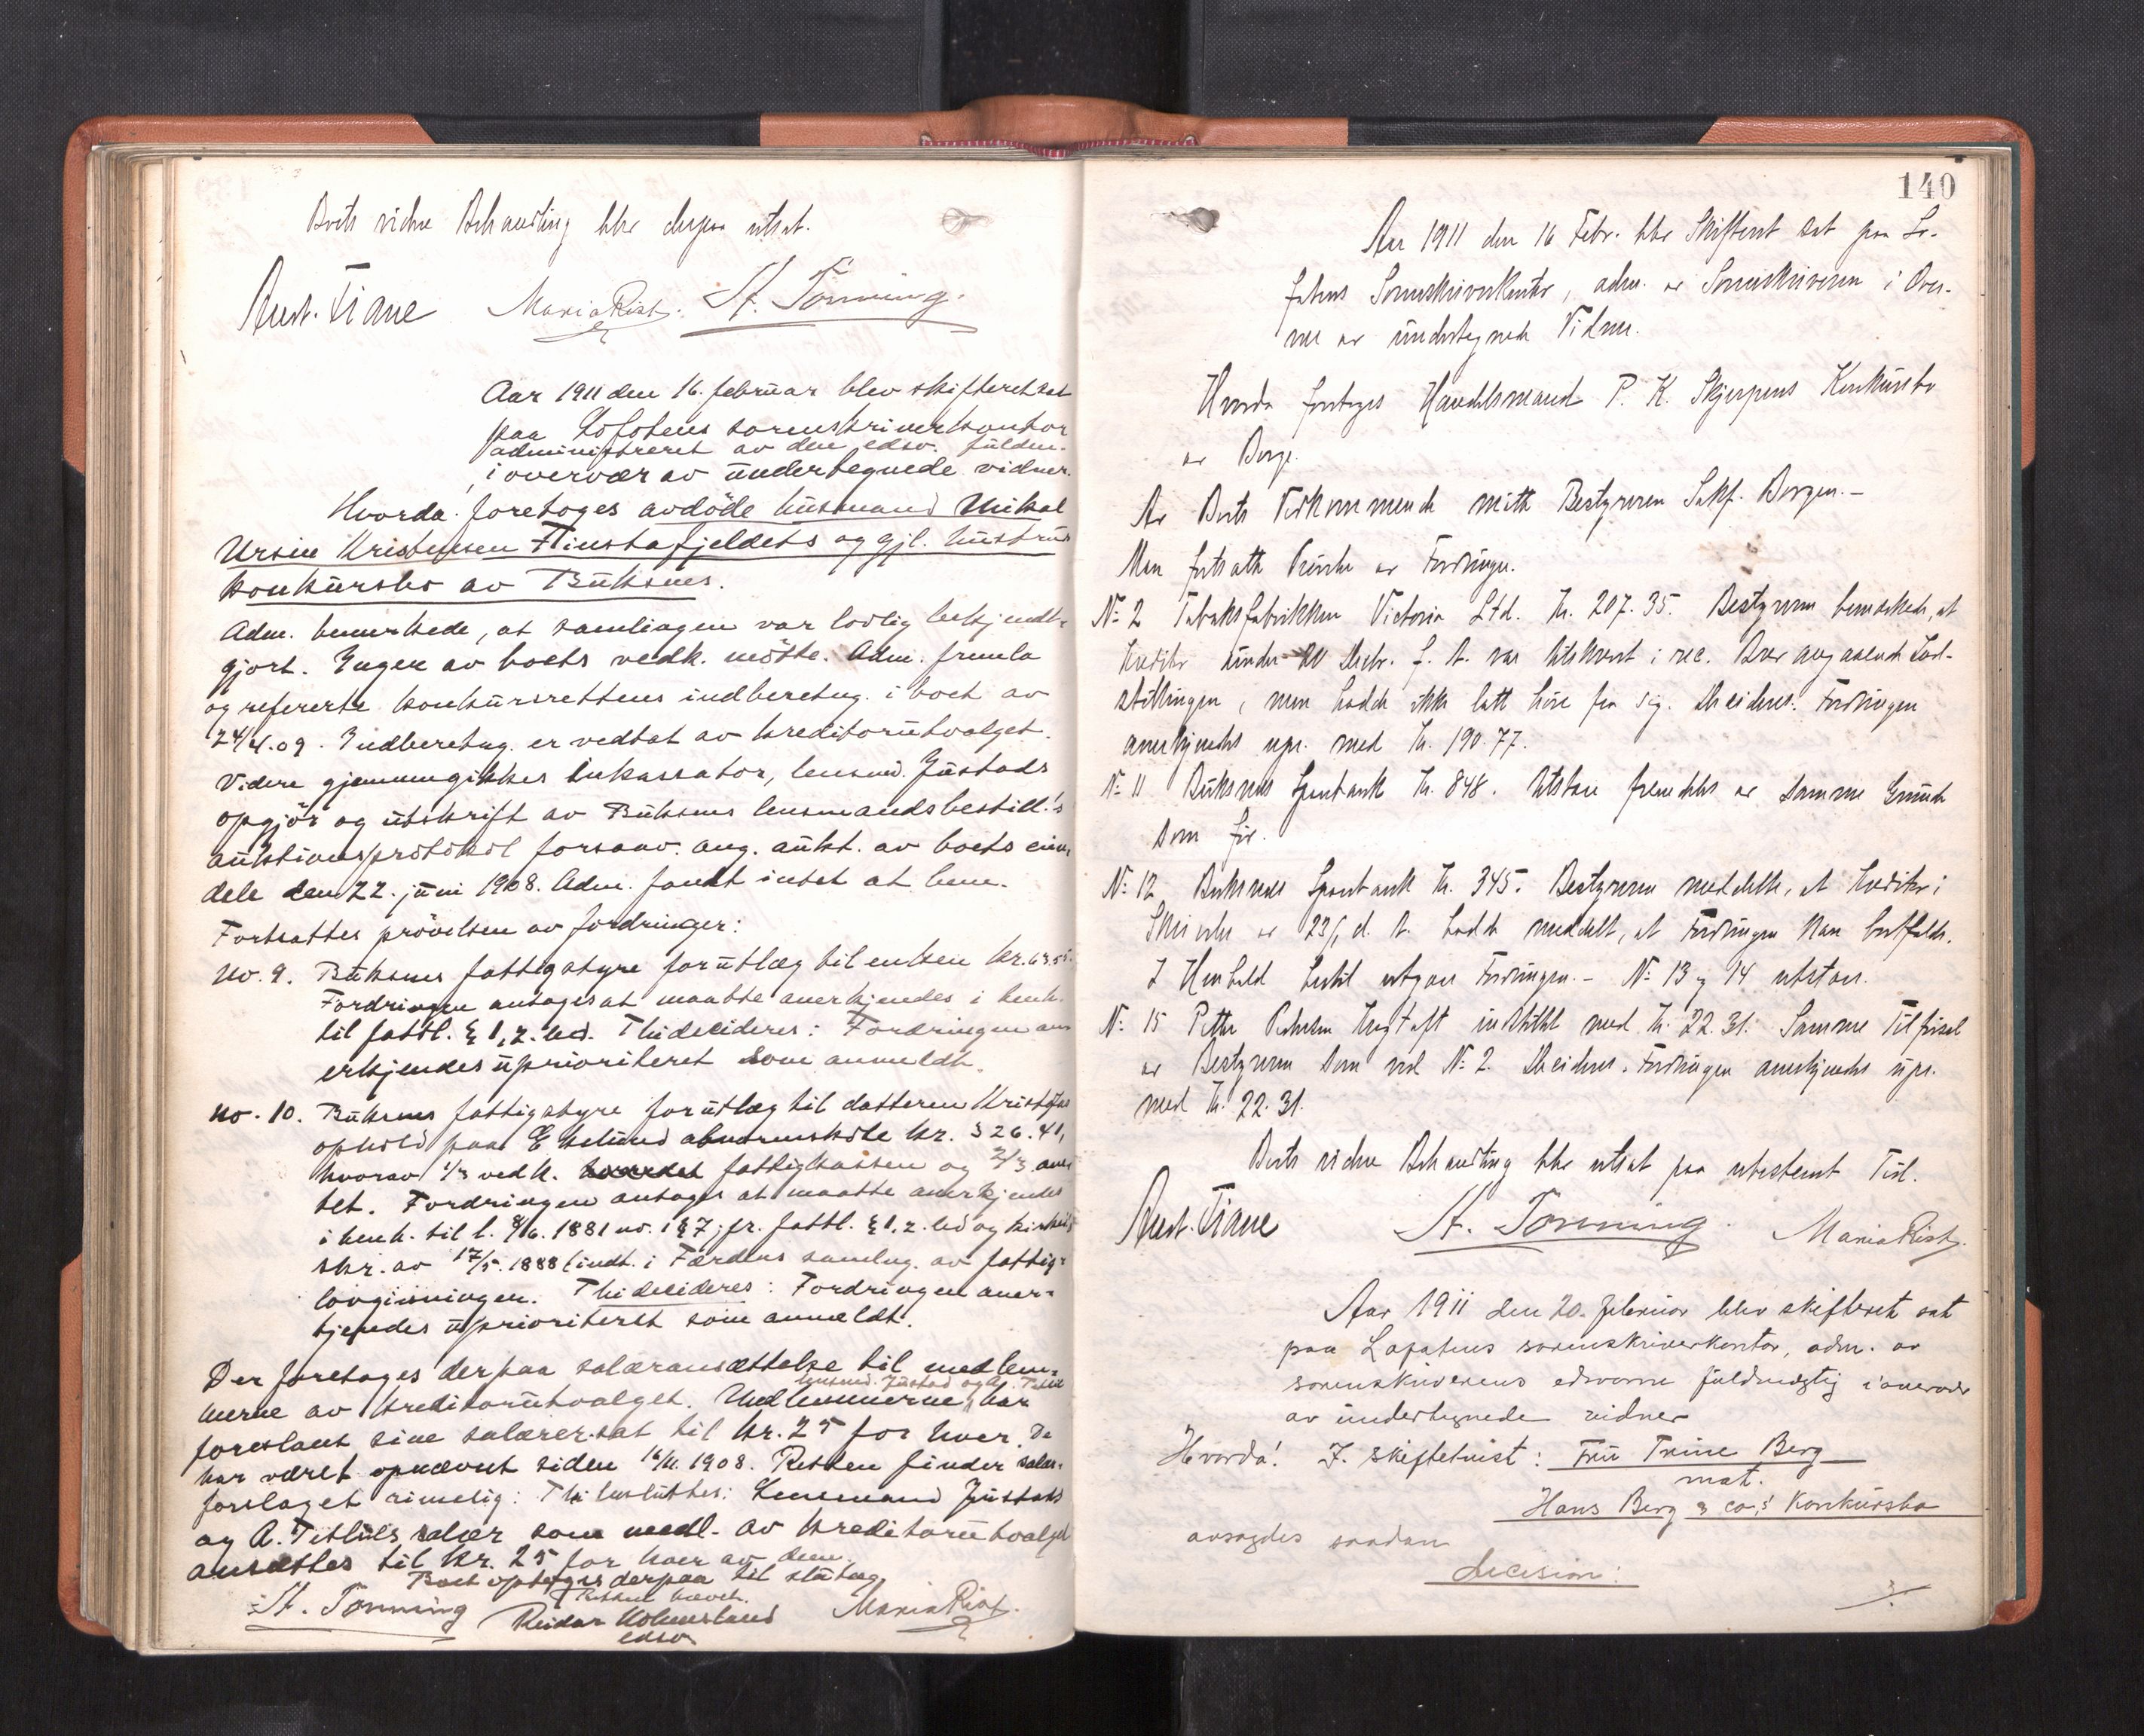 Boets videre Behandling blev derpaa utsat.
Aust. Tiane Maria Rist. St. Tönning.
Aar 1911 den 16. februar blev skifteret sat
paa Lofotens sorenskriverkontor
administreret av den edsv. fuldm.
i overvær av undertegnede vidner.
Hvorda foretoges avdöde husmand Mikal
Ursin Kristensen Finstafjeldets og gjl. hustrus
konkursbo av Buksnes.
Adm. bemerkede, at samlingen var lovlig bekjendt-
gjort. Ingen av boets vedk. mötte. Adm. fremla
og refererte konkursrettens indberetng. i boet av
24/4.09. Indberetng. er vedtat av kreditorutvalget.
Videre gjennemgikkes inkassator, lensmd. Justads
opgjör og utskrift av Buksnes lensmandsbestill.'s
auktionsprotokol forsaav. ang. aukt. av boets eien-
dele den 22. juni 1908. Adm. fandt intet at bem.
Fortsattes prövelsen av fordringer:
no. 9. Buksnes fattigstyre for utlæg til enken kr. 63.55.
Fordringen antages at maatte anerkjendes i henh.
til fattl. § 1, 2. led. Thi decideres: Fordringen an-
erkjendes uprioriteret som anmeldt.
no. 10. Buksnes fattigstyre for utlæg til datteren Kristofas
ophold paa Ekelund abnormskole kr. 326.41,
hvorav 1/3 vedk. fattigkassen og 2/3 am-
tet. Fordringen antages at maatte anerkjendes
i henh. til l. 8/6. 1881 no. 1 § 7, jfr. fattl. § 1, 2. led og kirked.
skr. av 17/5. 1888 (indt. i Færdens samlng. av fattig-
lovgivningen. Thi decideres: Fordringen aner-
kjendes uprioritert som anmeldt.
Der foretoges derpaa salæransættelse til medlem-
lensmd. Justad og A. Titlul
merne av kreditorutvalget. Medlemmerne, har
foreslaat sine salærer sat til kr. 25 for hver. De
har været opnævnt siden 16/11. 1908. Retten finder salær-
forslaget rimelig: Thi besluttes: Lensmand Justads
og A. Titluls salær som medl. av kreditorutvalget
ansættes til kr. 25 for hver av dem.
Boet optoges derpaa til slutng.
Retten hævet.
St. Tönning Reidar Holmesland Maria Rist.
edsv
140
Aar 1911 den 16 Febr. blev Skifteret sat paa Lo-
fotens Sorenskriverkontor, adm. av Sorenskriveren i Over-
vær av undertegnede Vidner.
Hvorda foretoges Handelsmand P. K. Skjerpens Konkursbo
av Borge.
Av Boets Vedkommende mötte Bestyreren Sakf. Borgen.-
Man fortsatte Prövelse av Fordringer.
No 2 Tobaksfabrikken Victoria Ltd. Kr. 207.35. Bestyreren bemerkede, at
Kreditor under Decbr. f. A. var tilskrevet i rec. Brev angaaende Lod-
stillingen, men hadde ikke latt höre fra sig. Decideres: Fordringen
anerkjendes upr. med Kr. 190.77.
No 11 Buksnes Sparebank Kr. 848. Utstaar fremdeles av samme Grund
som för.
No 12 Buksnes Sparebank Kr. 345. Bestyreren meddelte, at Kreditor i
Skrivelse av 23/1 d. A. hadde meddelt, at Fordringen kan bortfalde.
I Henhold hertil utgaar Fordringen.- No 13 og 14 utstaar.
No 15 Petter Pedersen Krogtoft indstillet med Kr. 22.31. Samme Tilförsel
av Bestyreren som ved No 2. Decideres: Fordringen anerkjendes upr.
med Kr. 22.31.
Boets videre Behandling blev utsat paa ubestemt Tid.
Aust. Tiane St. Tönning. Maria Rist.
Aar 1911 den 20. februar blev skifteret sat
paa Lofotens sorenskriverkontor, adm. av
sorenskriverens edsvorne fuldmægtig i overvær
av undertegnede vidner
Hvorda! I. skiftetvist: Fru Trine Berg
mot.
Hans Berg & co.s' konkursbo
avsagdes saadan
decision: